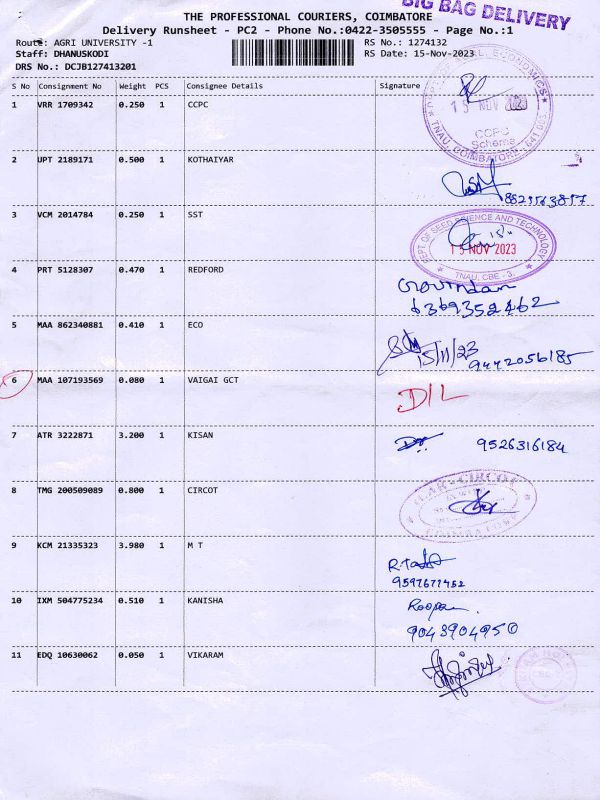 BIG BAG DELIVERY
THE PROFESSIONAL COURIERS, COIMBATORE
Delivery Runsheet - PC2 - Phone No.:0422-3505555 - Page No.:1
Route: AGRI UNIVERSITY -1 RS No.: 1274132
Staff: DHANUSKODI RS Date: 15-Nov-2023
DRS No.: DCJB127413201
S No Consignment No Weight PCS Consignee Details Signature
1 VRR 1709342 0.250 1 CCPC
15 NOV 2023
CCPC
Scheme
TNAU, COIMBATORE - 641 003
2 UPT 2189171 0.500 1 KOTHAIYAR
3 VCM 2014784 0.250 1 SST
DEPT OF SEED SCIENCE AND TECHNOLOGY
15 NOV 2023
TNAU, CBE - 3.
4 PRT 5128307 0.470 1 REDFORD
Govindan
6369352462
5 MAA 862340881 0.410 1 ECO
15/11/23
9442056185
6 MAA 107193569 0.080 1 VAIGAI GCT
D/L
7 ATR 3222871 3.200 1 KISAN
9526316184
8 TMG 200509089 0.800 1 CIRCOT
ICAR - CIRCOT
9 KCM 21335323 3.980 1 M T
9597677452
10 IXM 504775234 0.510 1 KANISHA
9043904950
11 EDQ 10630062 0.050 1 VIKARAM